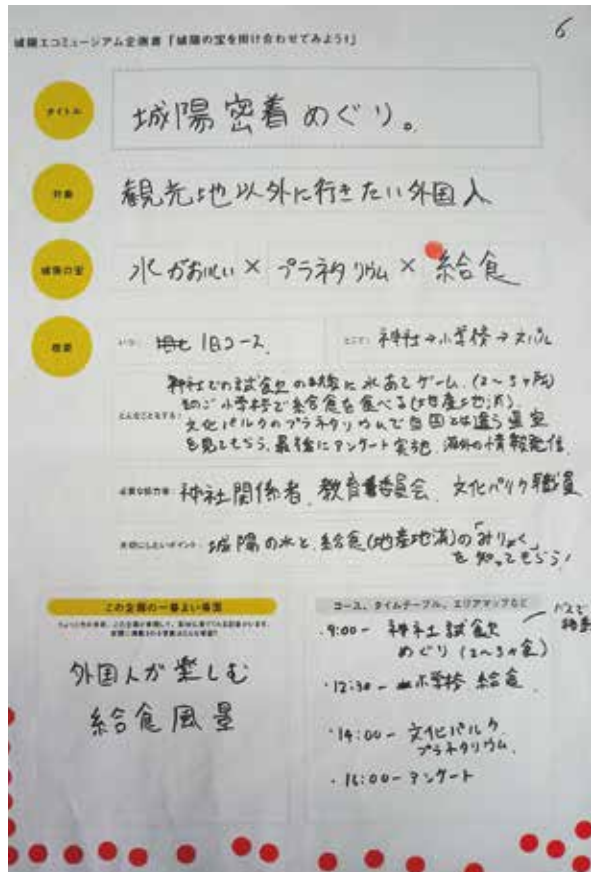 6
城陽エコミュージアム企画書「城陽の宝を掛け合わせてみよう!」
タイトル
城陽密着めぐり。
対象
観光地以外に行きたい外国人
城陽の宝
水がおいしい × プラネタリウム × 給食
概要
いつ: 1日コース
どこで: 神社→小学校→文パル
神社での試飲の後に水あてゲーム (2〜3ヶ所)
どんなことをする: 小学校で給食を食べる(地産地消)
文化パルクのプラネタリウムで自国とは違う星空
を見てもらう。最後にアンケート実施 海外の情報発信
必要な協力者: 神社関係者、教育委員会、文化パルク職員
大切にしたいポイント: 城陽の水と、給食(地産地消)の「みりょく」
を知ってもらう!
この企画の一番よい場面
外国人が楽しむ
給食風景
コース、タイムテーブル、エリアマップなど
バスで
・9:00- 神社試飲
めぐり (2〜3ヶ所)
・12:30- 小学校 給食
・14:00- 文化パルク
プラネタリウム
・16:00- アンケート